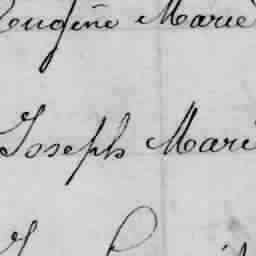 Eugène Marie
Joseph Mari